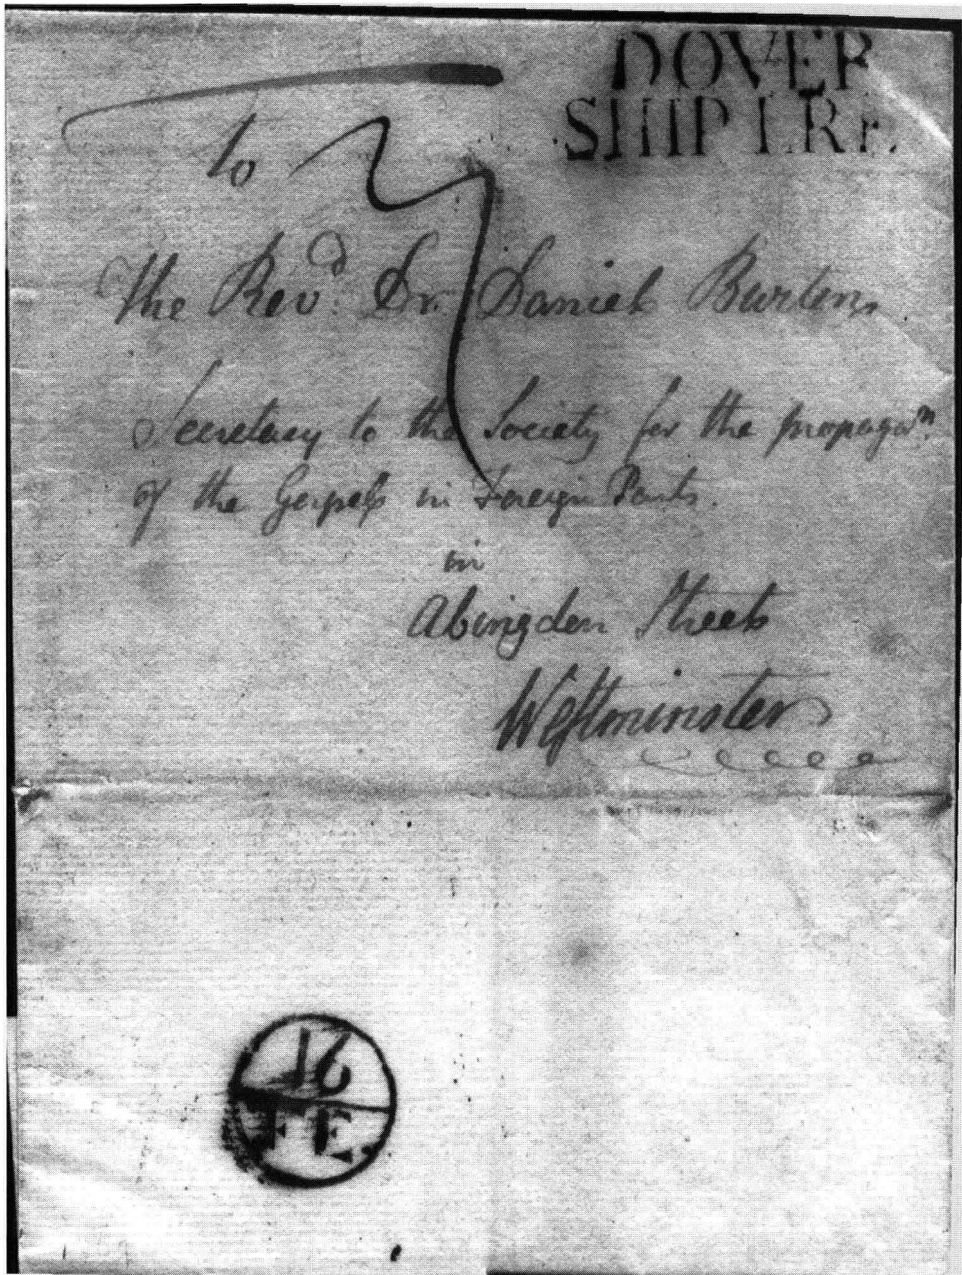 DOVER
SHIP LRE.
To
The Revd. Dr. Daniel Burton
Secretary to the Society for the propagan.
of the Gospel in Foreign Parts.
in
Abingdon Street
Westminster
16
FE.